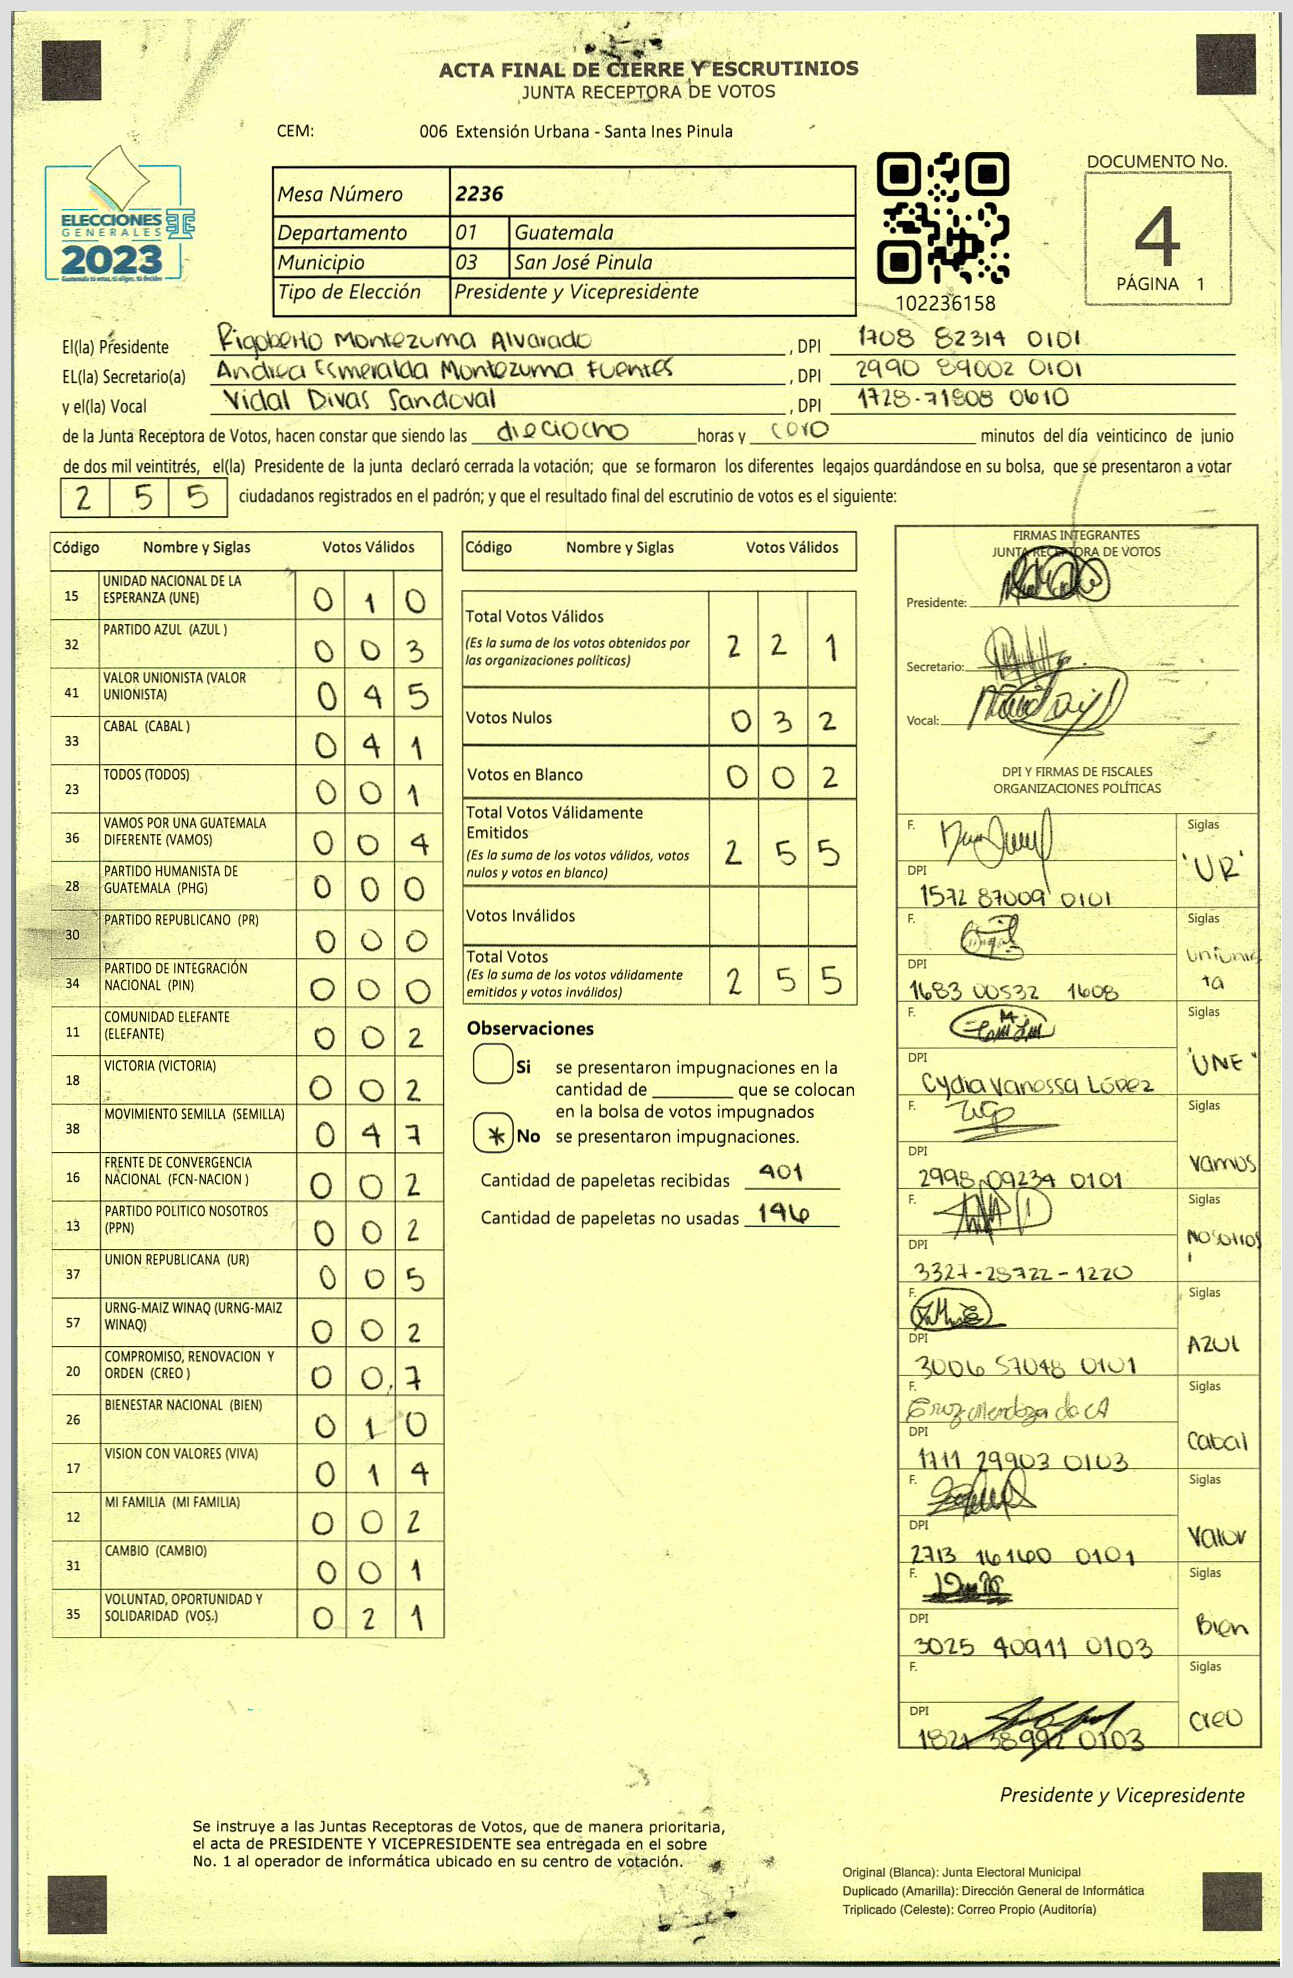 ACTA FINAL DE CIERRE Y ESCRUTINIOS
JUNTA RECEPTORA DE VOTOS
CEM: 006 Extensión Urbana - Santa Ines Pinula
ELECCIONES
GENERALES
2023
Mesa Número 2236
Departamento 01 Guatemala
Municipio 03 San José Pinula
Tipo de Elección Presidente y Vicepresidente
102236158
DOCUMENTO No.
4
PÁGINA 1
El(la) Presidente Rigoberto Montezuma Alvarado, DPI 1708 82314 0101
EL(la) Secretario(a) Andrea Esmeralda Montezuma Fuentes, DPI 2990 89002 0101
y el(la) Vocal Vidal Divas Sandoval, DPI 1728-71808 0610
de la Junta Receptora de Votos, hacen constar que siendo las dieciocho horas y cero minutos del día veinticinco de junio
de dos mil veintitrés, el(la) Presidente de la junta declaró cerrada la votación; que se formaron los diferentes legajos guardándose en su bolsa, que se presentaron a votar
2 5 5 ciudadanos registrados en el padrón; y que el resultado final del escrutinio de votos es el siguiente:
Código Nombre y Siglas Votos Válidos
15 UNIDAD NACIONAL DE LA ESPERANZA (UNE) 0 1 0
32 PARTIDO AZUL (AZUL ) 0 0 3
41 VALOR UNIONISTA (VALOR UNIONISTA) 0 4 5
33 CABAL (CABAL ) 0 4 1
23 TODOS (TODOS) 0 0 1
36 VAMOS POR UNA GUATEMALA DIFERENTE (VAMOS) 0 0 4
28 PARTIDO HUMANISTA DE GUATEMALA (PHG) 0 0 0
30 PARTIDO REPUBLICANO (PR) 0 0 0
34 PARTIDO DE INTEGRACIÓN NACIONAL (PIN) 0 0 0
11 COMUNIDAD ELEFANTE (ELEFANTE) 0 0 2
18 VICTORIA (VICTORIA) 0 0 2
38 MOVIMIENTO SEMILLA (SEMILLA) 0 4 7
16 FRENTE DE CONVERGENCIA NACIONAL (FCN-NACION ) 0 0 2
13 PARTIDO POLITICO NOSOTROS (PPN) 0 0 2
37 UNION REPUBLICANA (UR) 0 0 5
57 URNG-MAIZ WINAQ (URNG-MAIZ WINAQ) 0 0 2
20 COMPROMISO, RENOVACION Y ORDEN (CREO ) 0 0 7
26 BIENESTAR NACIONAL (BIEN) 0 1 0
17 VISION CON VALORES (VIVA) 0 1 4
12 MI FAMILIA (MI FAMILIA) 0 0 2
31 CAMBIO (CAMBIO) 0 0 1
35 VOLUNTAD, OPORTUNIDAD Y SOLIDARIDAD (VOS.) 0 2 1
Código Nombre y Siglas Votos Válidos
Total Votos Válidos 2 2 1
(Es la suma de los votos obtenidos por
las organizaciones políticas)
Votos Nulos 0 3 2
Votos en Blanco 0 0 2
Total Votos Válidamente
Emitidos 2 5 5
(Es la suma de los votos válidos, votos
nulos y votos en blanco)
Votos Inválidos
Total Votos 2 5 5
(Es la suma de los votos válidamente
emitidos y votos inválidos)
Observaciones
Si se presentaron impugnaciones en la
cantidad de ________ que se colocan
en la bolsa de votos impugnados
* No se presentaron impugnaciones.
Cantidad de papeletas recibidas 401
Cantidad de papeletas no usadas 146
FIRMAS INTEGRANTES
JUNTA RECEPTORA DE VOTOS
Presidente:
Secretario:
Vocal:
DPI Y FIRMAS DE FISCALES
ORGANIZACIONES POLÍTICAS
F. Siglas 'UR'
DPI 1572 87009 0101
F. Siglas Unionista
DPI 1683 00532 1608
F. Siglas "UNE"
DPI Cydia Vanessa López
F. Siglas Vamos
DPI 2998 09234 0101
F. Siglas Nosotros
DPI 3327-28722-1220
F. Siglas AZUl
DPI 3006 57048 0101
F. Cruz Mendoza Siglas Cabal
DPI 1711 29903 0103
F. Siglas Valor
DPI 2713 16160 0101
F. Siglas Bien
DPI 3025 40911 0103
F. Siglas Creo
DPI 1821 38992 0103
Presidente y Vicepresidente
Se instruye a las Juntas Receptoras de Votos, que de manera prioritaria,
el acta de PRESIDENTE Y VICEPRESIDENTE sea entregada en el sobre
No. 1 al operador de informática ubicado en su centro de votación.
Original (Blanca): Junta Electoral Municipal
Duplicado (Amarilla): Dirección General de Informática
Triplicado (Celeste): Correo Propio (Auditoría)